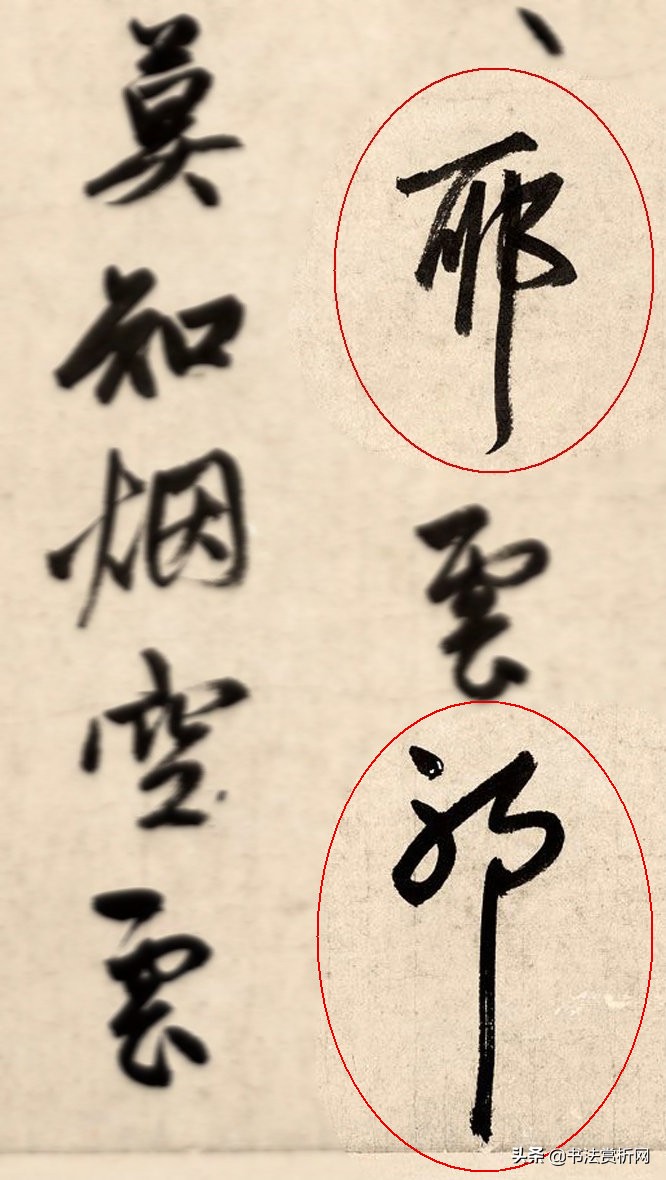 耶雲耶
莫知烟空雲
头条 @书法赏析网